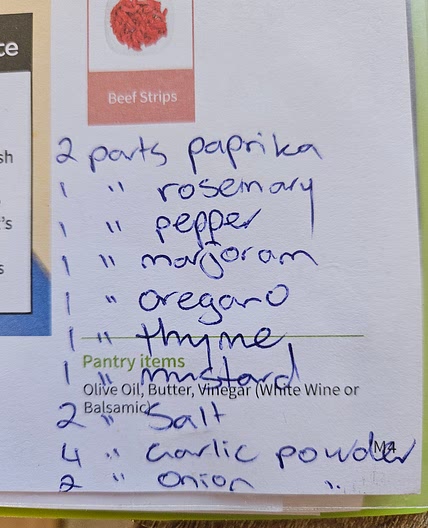 te
Beef Strips
sh
's
s
2 parts paprika
1 " rosemary
1 " pepper
1 " marjoram
1 " oregano
1 " thyme
Pantry items
1 " mustard
Olive Oil, Butter, Vinegar (White Wine or
Balsamic)
2 " Salt
4 " Garlic powder
2 " onion "